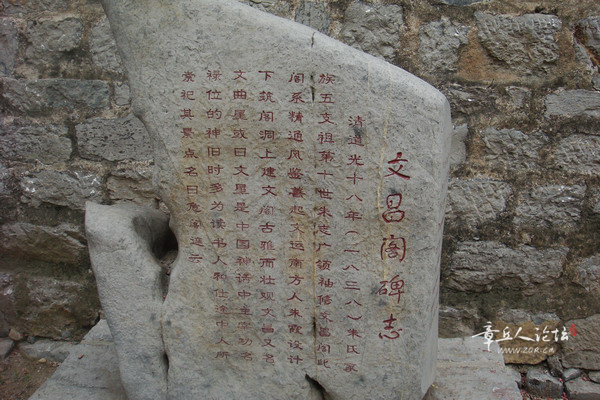 文昌阁碑志
清道光十八年（一八三八）朱氏家
族五支祖第十世朱克广领袖修文昌阁此
阁系精通风鉴善起文运南方人朱霞设计
下筑阁洞上建文阁古雅而壮观文昌又名
文曲星或曰文星是中国神话中主宰功名
禄位的神旧时多为读书人和仕途中人所
崇祀其景点名曰危阁连云
章丘人论坛
www.zqr.cn